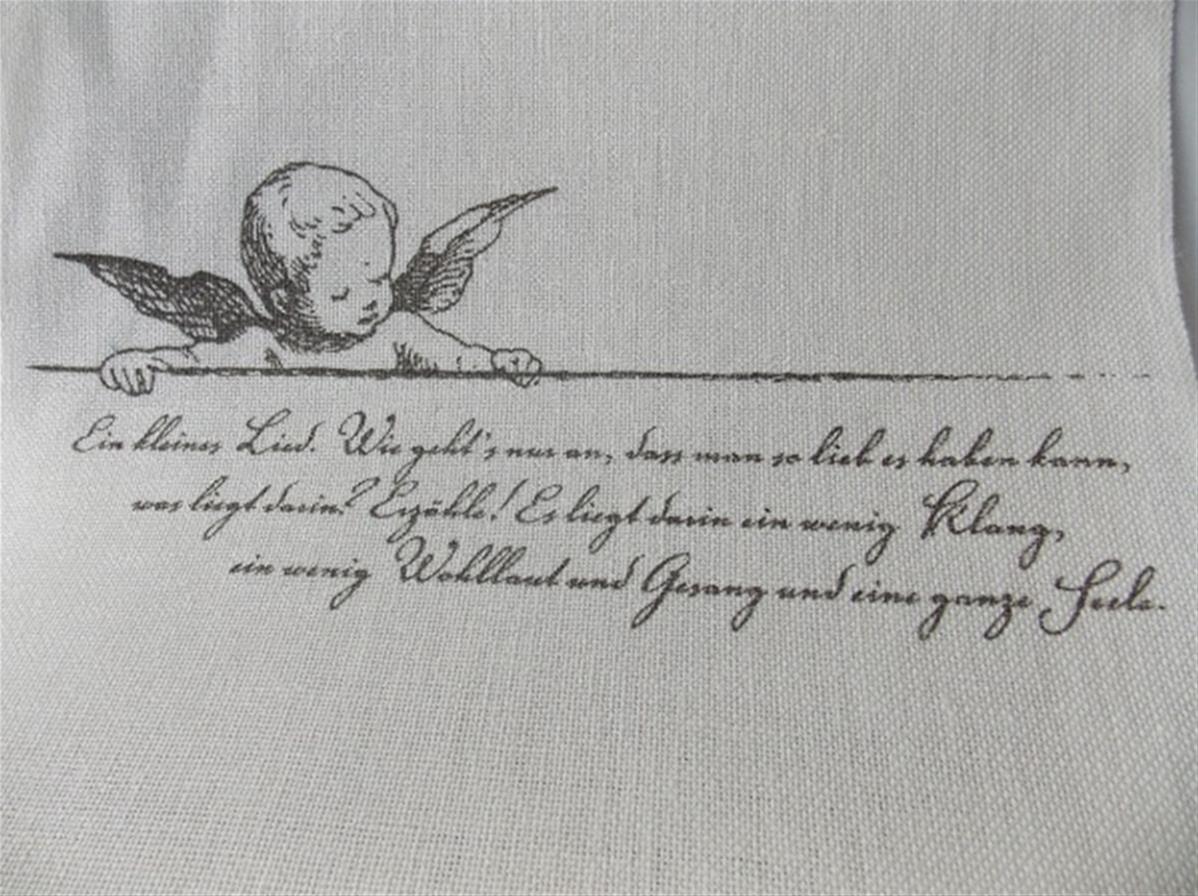 Ein kleines Lied. Wie geht's nur an, dass man so lieb es haben kann,
was liegt darin? Erzähle! Es liegt darin ein wenig Klang,
ein wenig Wohllaut und Gesang und eine ganze Seele.